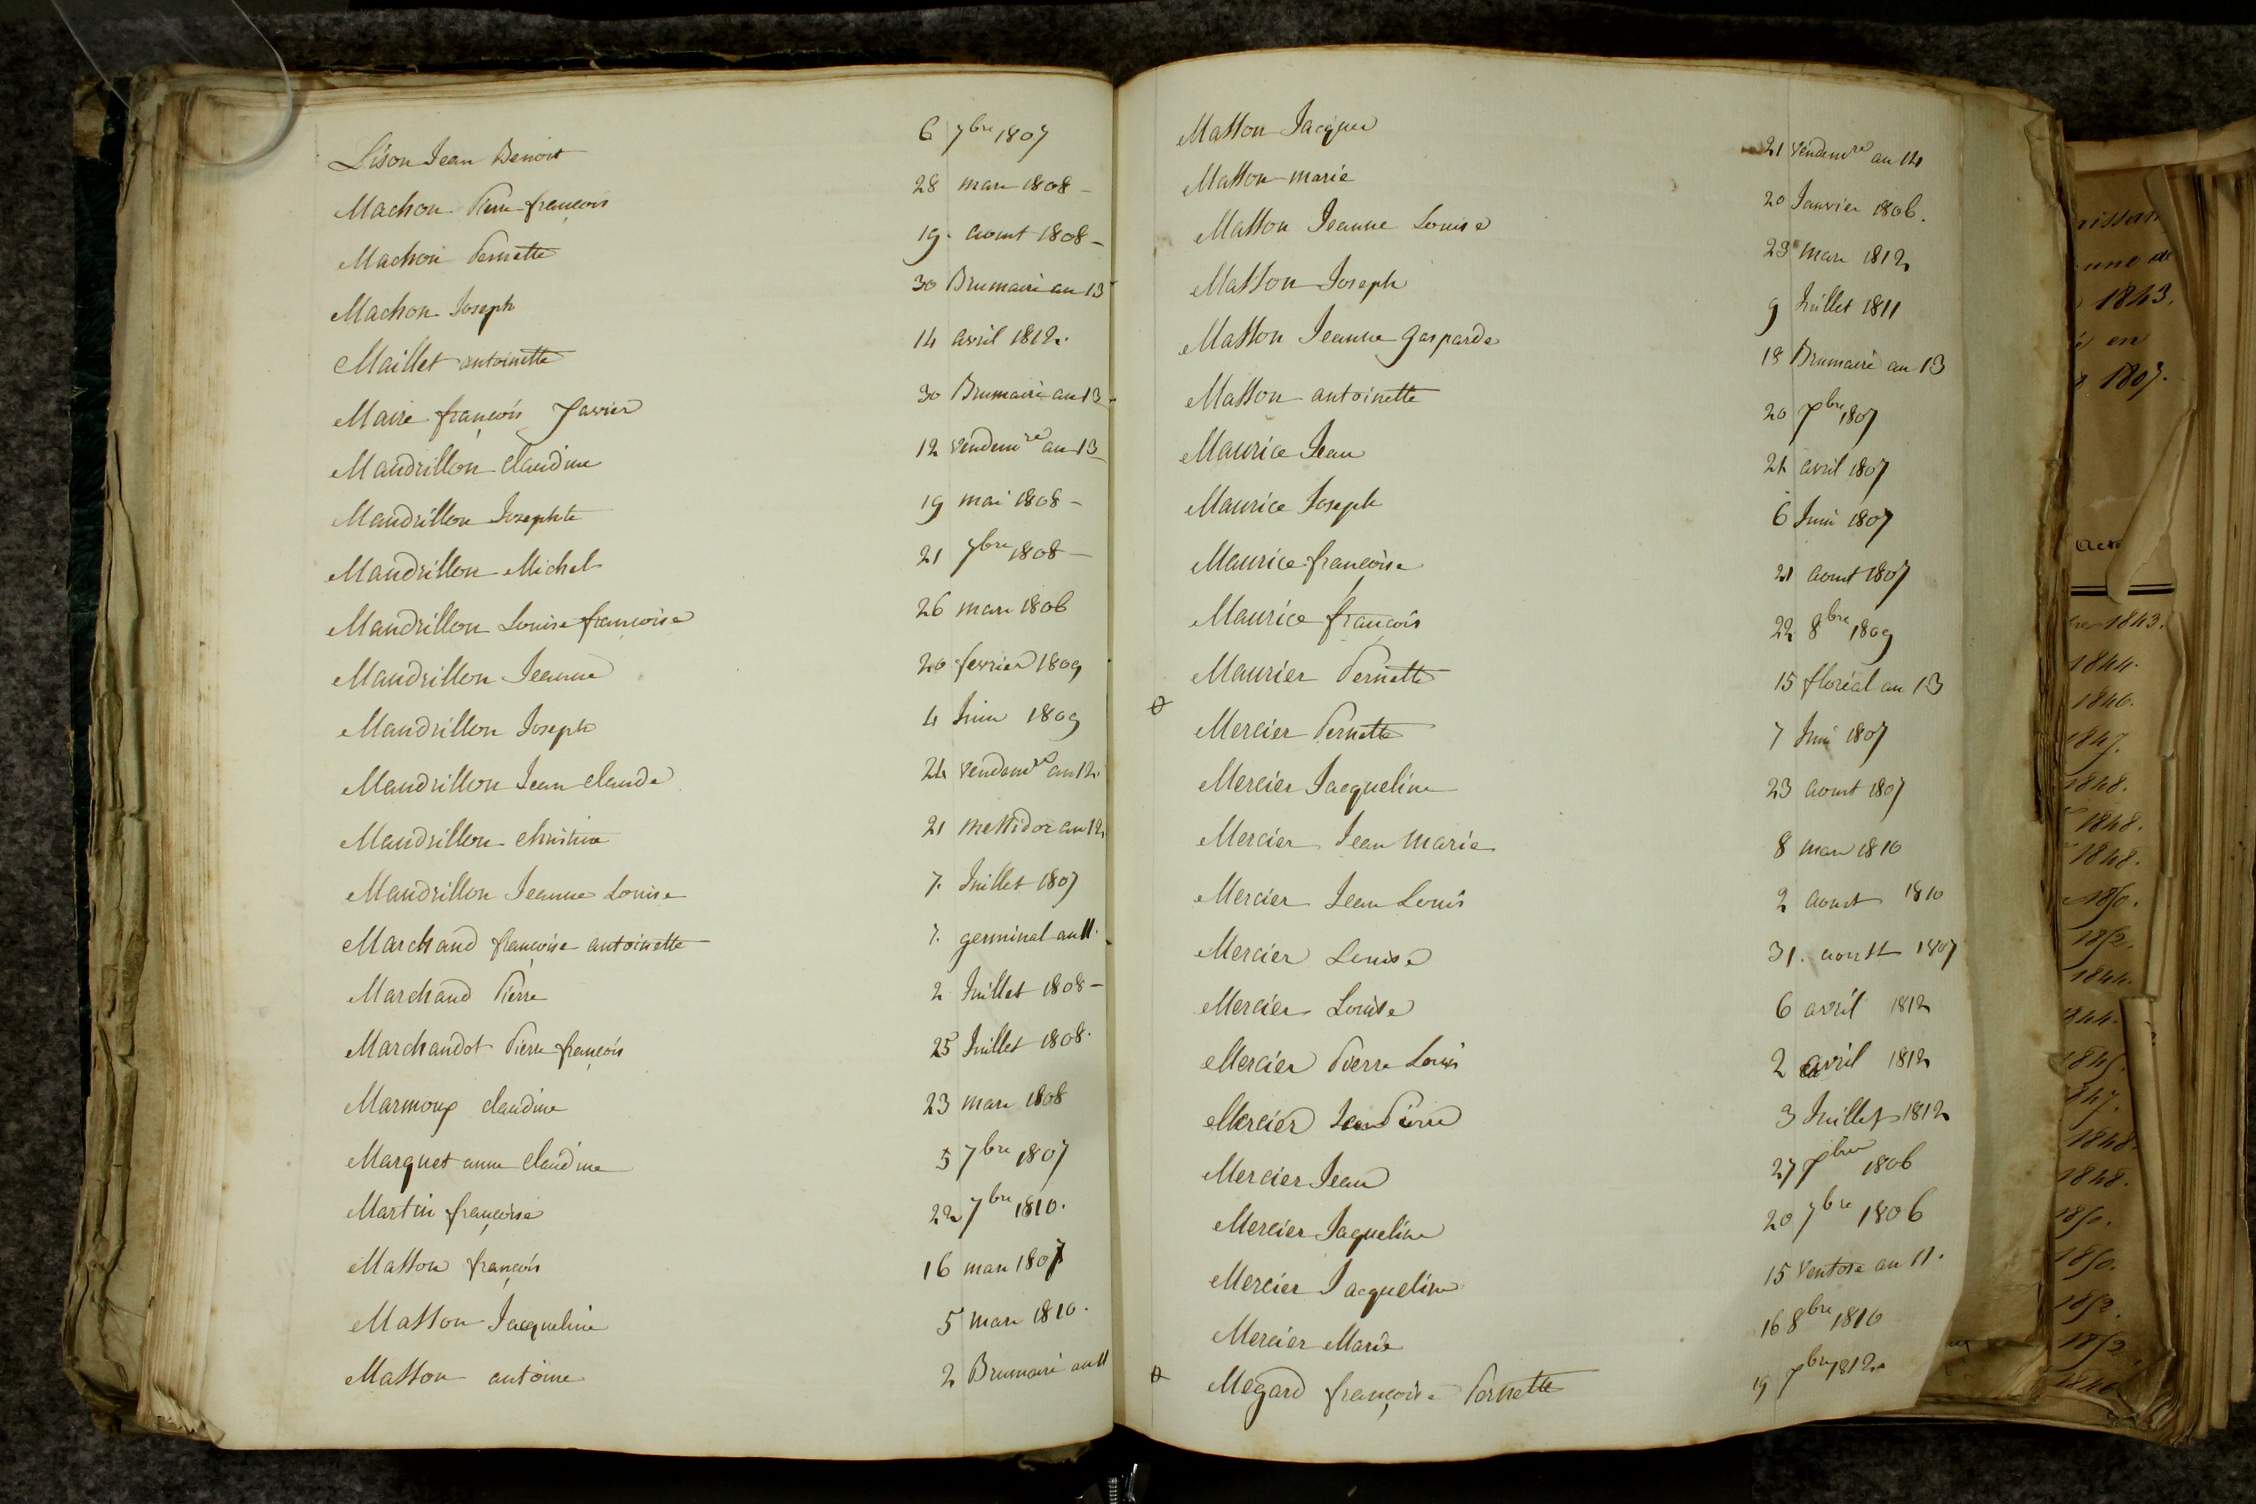 Lison Jean Benoit 6 7bre 1807
Machon Pierre françois 28 mars 1808 -
Machon Pernette 19. aout 1808 -
Machon Joseph 30 Brumaire an 13
Maillet antoinette 14 avril 1812.
Maire françois Xavier 30 Brumaire an 13
Mandrillon claudine 12 vendemre an 13
Mandrillon Josephte 19 mai 1808 -
Mandrillon Michel 21 7bre 1808 -
Mandrillon Louise françoise 26 mars 1806
Mandrillon Jeanne 20 fevrier 1809
Mandrillon Joseph 4 Juin 1809
Mandrillon Jean claude 24 vendemre an 12.
Mandrillon christine 21 messidor an 12
Mandrillon Jeanne Louise 7. Juillet 1807
Marchand françoise antoinette 7. germinal an 11.
Marchand Pierre 2 Juillet 1808 -
Marchandot Pierre françois 25 Juillet 1808.
Marmoux claudine 23 mars 1808
Marquet anne claudine 5 7bre 1807
Martin françoise 22 7bre 1810.
Masson françois 16 mars 1807
Masson Jacqueline 5 mars 1810.
Masson antoine 2 Brumaire an 11
Masson Jacques 21 vendemre an 14
Masson marie 20 Janvier 1806.
Masson Jeanne Louise 23 mars 1812
Masson Joseph 9 Juillet 1811
Masson Jeanne gasparde 18 Brumaire an 13
Masson antoinette 20 Xbre 1807
Maurice Jean 24 avril 1807
Maurice Joseph 6 Juin 1807
Maurice françoise 21 aout 1807
Maurice françois 22 8bre 1809
Maurier Pernette 15 floréal an 13
Mercier Pernette 7 Juin 1807
Mercier Jacqueline 23 aout 1807
Mercier Jean Marie 8 mars 1810
Mercier Jean Louis 2 aout 1810
Mercier Louise 31. aoust 1807
Mercier Louise 6 avril 1812
Mercier Pierre Louis 2 avril 1812
Mercier Jean Pierre 3 Juillet 1812
Mercier Jean 27 Xbre 1806
Mercier Jaqueline 20 7bre 1806
Mercier Jacqueline 15 ventose an 11.
Mercier Marie 16 8bre 1810
Megard françoise Pernette 19 Xbre 1812.
une de
1843.
en
1807.
1843.
1844.
1846.
1847.
1848.
1848.
1848.
1850.
1852.
1844.
1844.
1845.
1847.
1848.
1848.
1850.
1850.
1852.
1852.